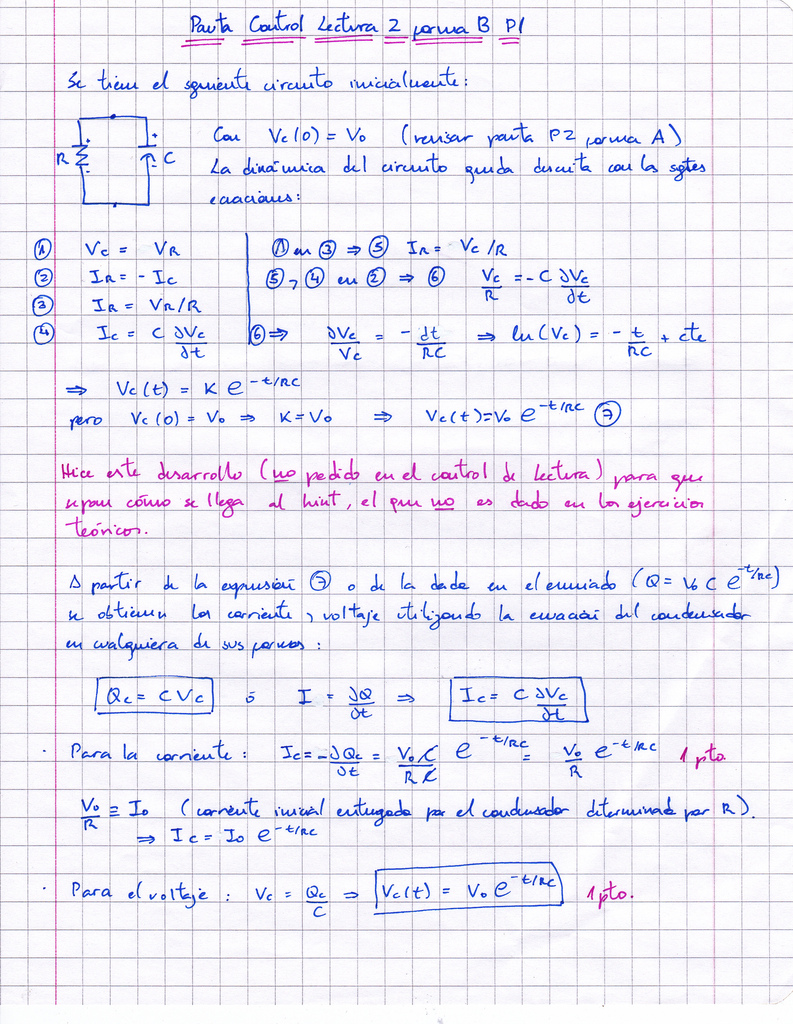 Pauta Control Lectura 2 forma B P1
Se tiene el siguiente circuito inicialmente:
R + - + - C
Con Vc(0) = Vo (revisar pauta P2 forma A)
La dinámica del circuito queda descrita con las sgtes
ecuaciones:
① Vc = VR
② IR = - Ic
③ IR = VR/R
④ Ic = C ∂Vc/∂t
① en ③ ⇒ ⑤ IR = Vc/R
⑤ y ④ en ② ⇒ ⑥ Vc/R = - C ∂Vc/∂t
⑥ ⇒ ∂Vc/Vc = - dt/RC ⇒ ln(Vc) = - t/RC + cte
⇒ Vc(t) = K e^-t/RC
pero Vc(0) = Vo ⇒ K = Vo ⇒ Vc(t) = Vo e^-t/RC ⑦
Hice este desarrollo (no pedido en el control de lectura) para que
sepan cómo se llega al hint, el que no es dado en los ejercicios
teóricos.
A partir de la expresión ⑦ o de la dada en el enunciado (Q = Vo C e^-t/RC)
se obtienen los corriente y voltaje utilizando la ecuación del condensador
en cualquiera de sus formas:
Qc = C Vc ó I = ∂Q/∂t ⇒ Ic = C ∂Vc/∂t
· Para la corriente: Ic = - ∂Qc/∂t = Vo C/R C e^-t/RC = Vo/R e^-t/RC 1 pto.
Vo/R ≡ Io (corriente inicial entregada por el condensador determinada por R).
⇒ Ic = Io e^-t/RC
· Para el voltaje: Vc = Qc/C ⇒ Vc(t) = Vo e^-t/RC 1 pto.